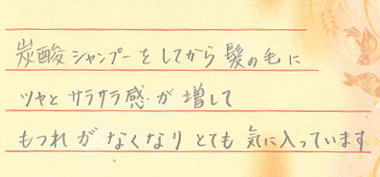 炭酸シャンプーをしてから髪の毛に
ツヤとサラサラ感が増して
もつれがなくなりとても気に入っています